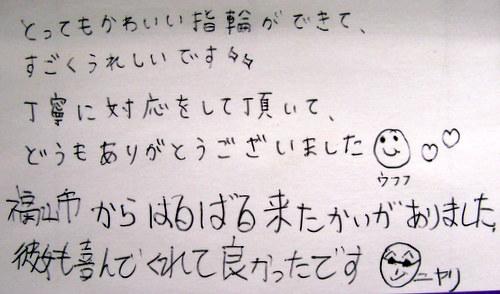 とってもかわいい指輪ができて、
すごくうれしいです
丁寧に対応をして頂いて、
どうもありがとうございました
ウフフ
福山市からはるばる来たかいがありました。
彼女も喜んでくれて良かったです
ニヤリ